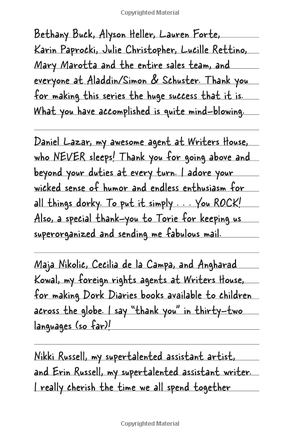 Copyrighted Material
Bethany Buck, Alyson Heller, Lauren Forte,
Karin Paprocki, Julie Christopher, Lucille Rettino,
Mary Marotta and the entire sales team, and
everyone at Aladdin/Simon & Schuster. Thank you
for making this series the huge success that it is.
What you have accomplished is quite mind-blowing.
Daniel Lazar, my awesome agent at Writers House,
who NEVER sleeps! Thank you for going above and
beyond your duties at every turn. I adore your
wicked sense of humor and endless enthusiasm for
all things dorky. To put it simply . . . You ROCK!
Also, a special thank-you to Torie for keeping us
superorganized and sending me fabulous mail.
Maja Nikolic, Cecilia de la Campa, and Angharad
Kowal, my foreign rights agents at Writers House,
for making Dork Diaries books available to children
across the globe. I say “thank you” in thirty-two
languages (so far)!
Nikki Russell, my supertalented assistant artist,
and Erin Russell, my supertalented assistant writer.
I really cherish the time we all spend together
Copyrighted Material